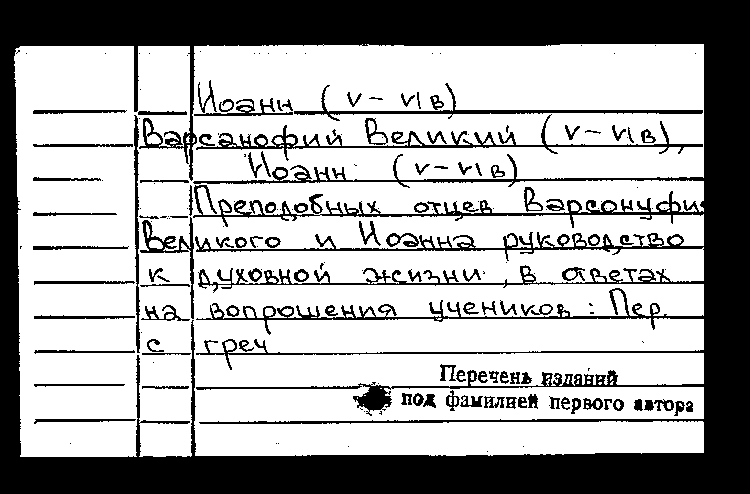 Иоанн (V – VI в)
Варсанофий Великий (V – VI в),
Иоанн (V – VI в)
Преподобных отцев Варсонуфия
Великого и Иоанна руководство
к духовной жизни, в ответах
на вопрошения учеников : Пер.
с греч
Перечень изданий
под фамилией первого автора